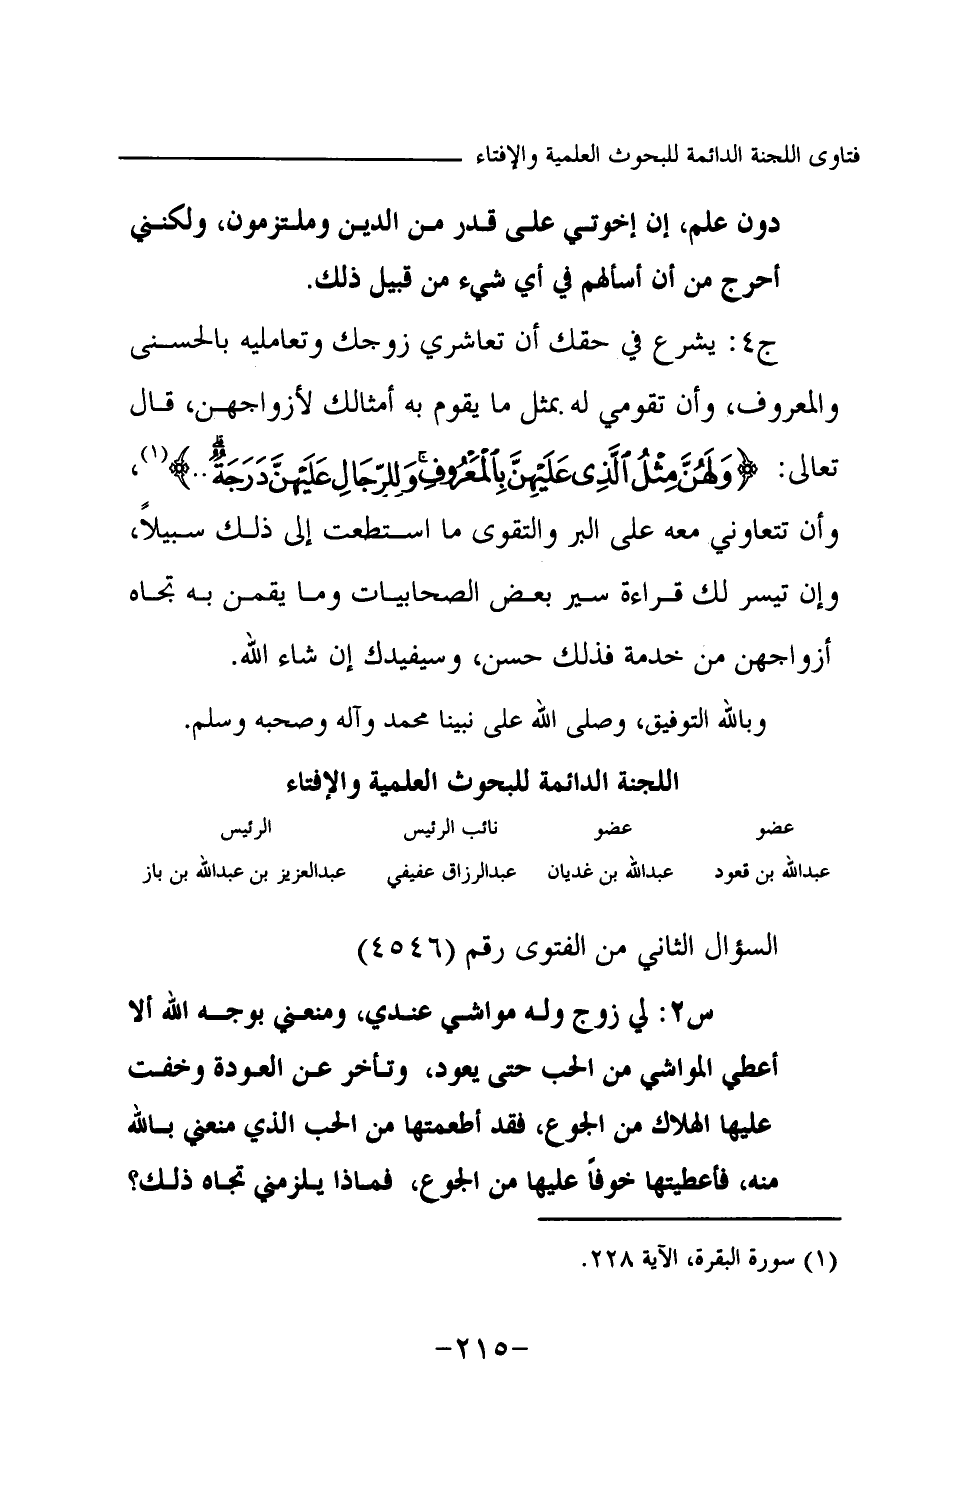 فتاوى اللجنة الدائمة للبحوث العلمية والإفتاء
دون علم، إن إخوتي على قدر من الدين وملتزمون، ولكنني
أحرج من أن أسألهم في أي شيء من قبيل ذلك.
ج٤: يشرع في حقك أن تعاشري زوجك وتعامليه بالحسنى
والمعروف، وأن تقومي له بمثل ما يقوم به أمثالك لأزواجهن، قال
تعالى: ﴿وَلَهُنَّ مِثْلُ ٱلَّذِى عَلَيْهِنَّ بِٱلْمَعْرُوفِۚ وَلِلرِّجَالِ عَلَيْهِنَّ دَرَجَةٌۗ..﴾(١)،
وأن تتعاوني معه على البر والتقوى ما استطعت إلى ذلك سبيلاً،
وإن تيسر لك قراءة سير بعض الصحابيات وما يقمن به تجاه
أزواجهن من خدمة فذلك حسن، وسيفيدك إن شاء الله.
وبالله التوفيق، وصلى الله على نبينا محمد وآله وصحبه وسلم.
اللجنة الدائمة للبحوث العلمية والإفتاء
عضو عضو نائب الرئيس الرئيس
عبدالله بن قعود عبدالله بن غديان عبدالرزاق عفيفي عبدالعزيز بن عبدالله بن باز
السؤال الثاني من الفتوى رقم (٤٥٤٦)
س٢: لي زوج وله مواشي عندي، ومنعني بوجه الله ألا
أعطي المواشي من الحب حتى يعود، وتأخر عن العودة وخفت
عليها الهلاك من الجوع، فقد أطعمتها من الحب الذي منعني بالله
منه، فأعطيتها خوفاً عليها من الجوع، فماذا يلزمني تجاه ذلك؟
(١) سورة البقرة، الآية ٢٢٨.
-٢١٥-